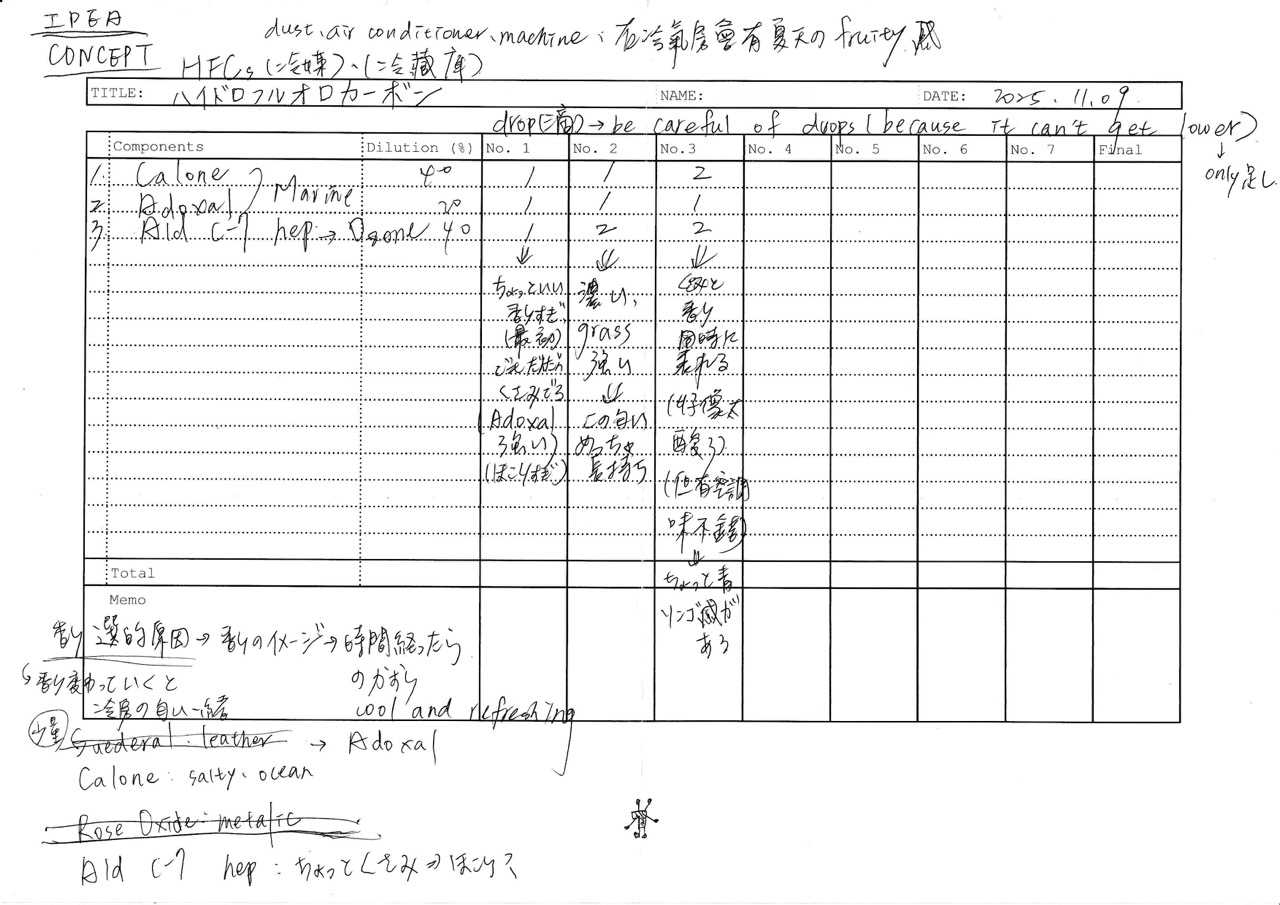 IDEA
CONCEPT
dust、air conditioner、machine、在冷氣房會有夏天の fruity 感
HFCs (冷媒)、(冷藏庫)
TITLE: ハイドロフルオロカーボン NAME: DATE: 2025.11.09
drop(滴)→ be careful of drops (because it can't get lower)
↓
only 足し
Components Dilution (%) No. 1 No. 2 No.3 No. 4 No. 5 No. 6 No. 7 Final
1. Calone 40 1 1 2
2. Adoxal 20 1 1 1
Marine
3. Ald C-7 hep → Ozone 40 1 2 2
⇓ ⇓ ⇓
ちょっといい
香りすぎ、
(最初)
でもだんだん
くさみでる
(Adoxal
強い)
(ほこりすぎ)
濃い、
grass
強い
⇓
この匂い
めっちゃ
長持ち
くさみと
香り
同時に
表れる
(好像太
酸了)
(但有空調
味不錯)
⇓
ちょっと青
リンゴ感が
ある
Total
Memo
香り選的原因→香りのイメージ→時間経ったら
のかおり
香り変わっていくと
冷房の匂い一緒
cool and refreshing
少量
Suederal. leather → Adoxal
Calone: salty、ocean
Rose Oxide: metalic
Ald C-7 hep: ちょっとくさみ⇒ほこり?